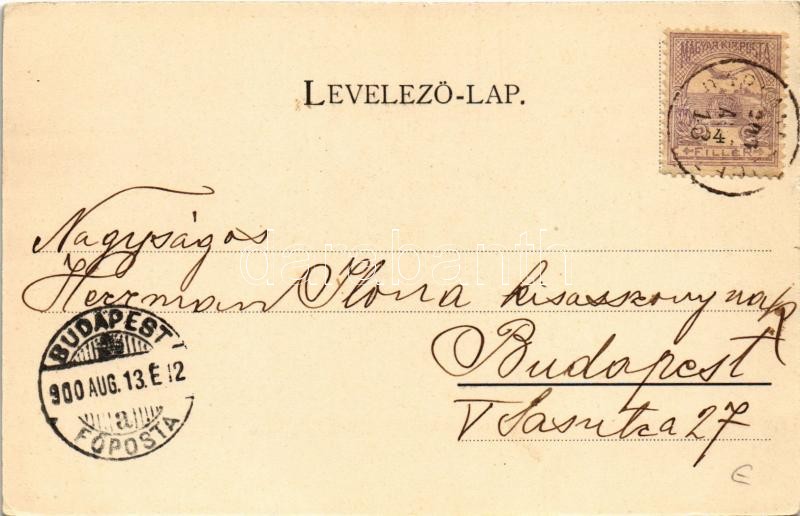 LEVELEZŐ-LAP.
MAGYAR KIR. POSTA
FILLÉR
Nagyságos
Herrman Ilona kisasszonynak
Budapest
V Sas utca 27
BUDAPEST
900 AUG. 13. É 12
a
FŐPOSTA
darabanth